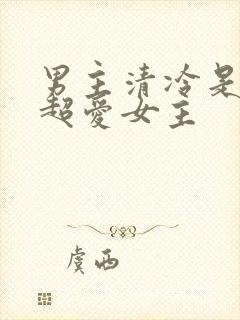 男主清冷是
超爱女主
虞西